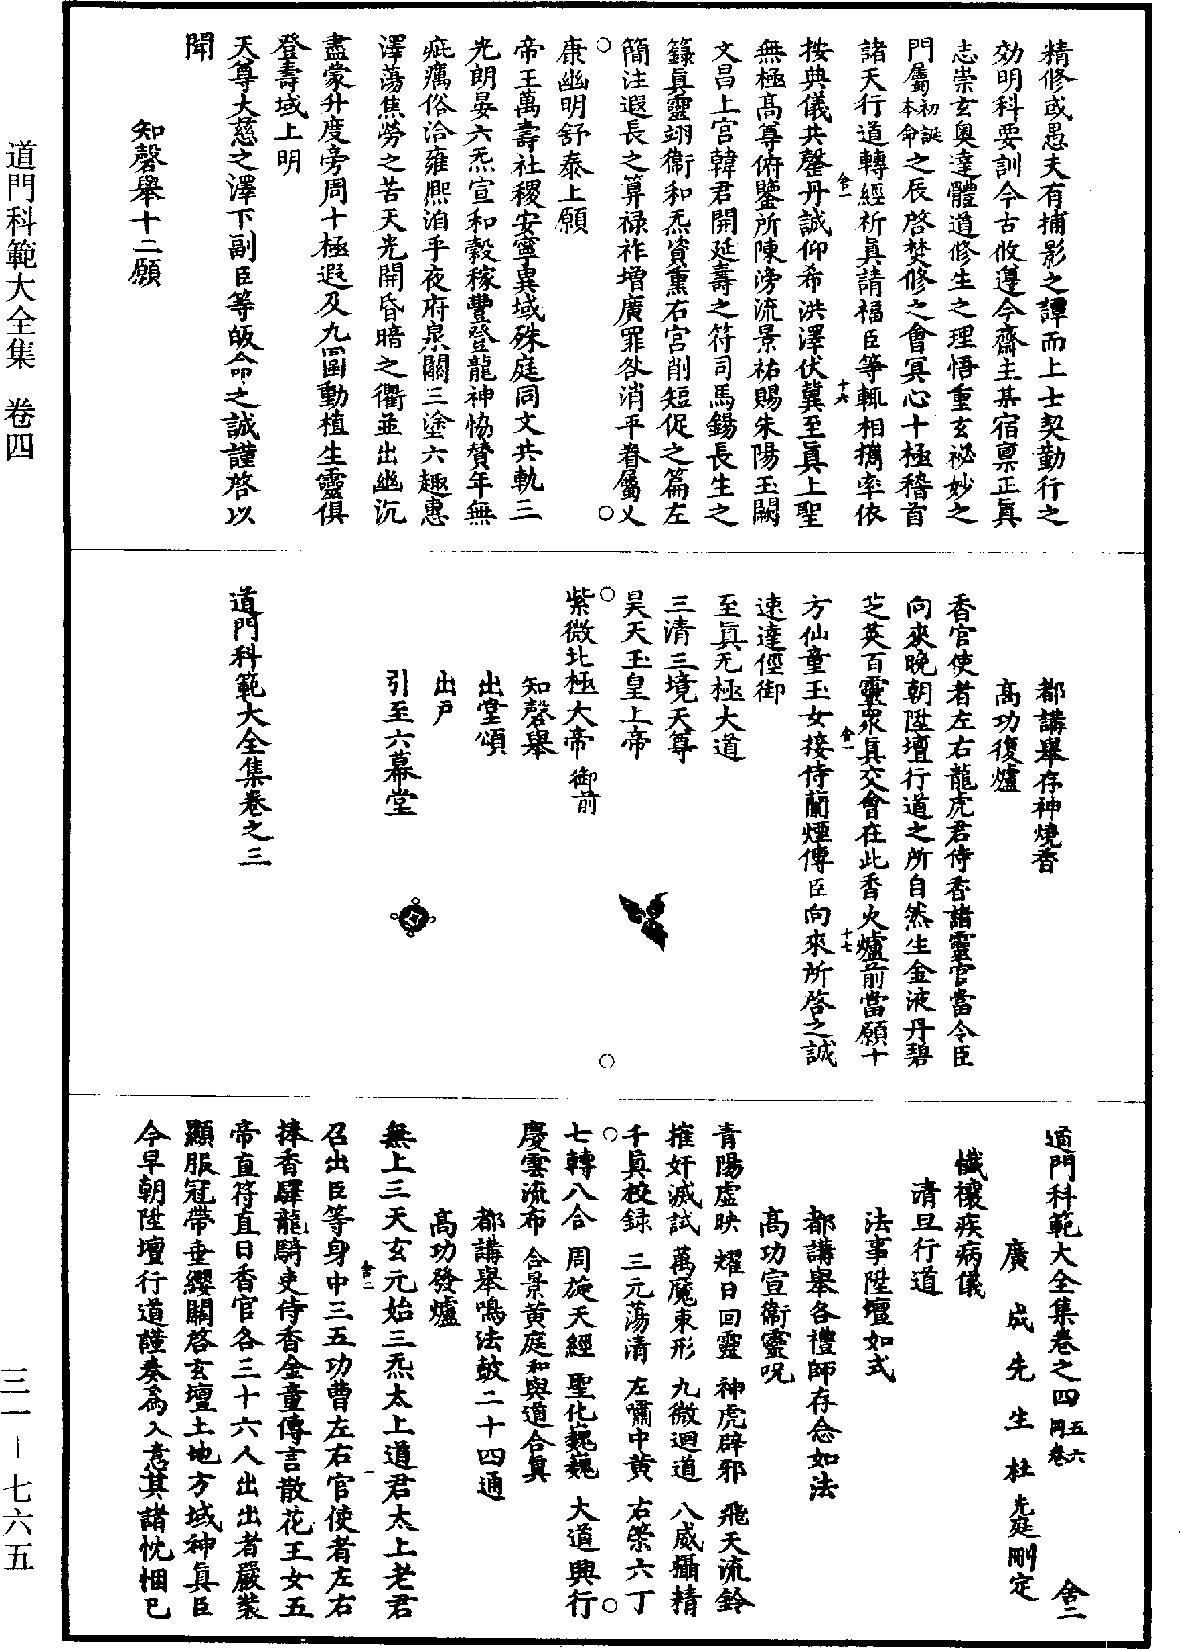 精修或愚夫有捕影之譚而上士契勤行之
効明科要訓今古攸遵今齋主某宿禀正真
志崇玄奧達體道修生之理悟重玄祕妙之
門屬初誕本命之辰啓焚修之會冥心十極稽首
諸天行道轉經祈真請福臣等輒相擕率依
按典儀共罄丹誠仰希洪澤伏冀至真上聖
無極高尊俯鑒所陳滂流景祐賜朱陽玉闕
文昌上宮韓君開延壽之符司馬錫長生之
籙真靈翊衞和炁資熏右宮削短促之篇左
簡注遐長之算祿祚增廣罪咎消平眷屬乂
康幽明舒泰上願
帝王萬壽社稷安寧異域殊庭同文共軌三
光朗晏六炁宣和穀稼豐登龍神恊贊年無
疵癘俗洽雍熙洎乎夜府泉關三塗六趣惠
澤蕩焦勞之苦天光開昏暗之衢並出幽沉
盡蒙升度旁周十極遐及九圍動植生靈俱
登壽域上明
天尊大慈之澤下副臣等皈命之誠謹啓以
聞
知磬舉十二願
舍一
十六
都講舉存神燒香
高功復爐
香官使者左右龍虎君侍香諸靈官當令臣
向來晚朝陞壇行道之所自然生金液丹碧
芝英百靈衆真交會在此香火爐前當願十
方仙童玉女接侍蘭煙傳臣向來所啓之誠
速達徑御
至真无極大道
三清三境天尊
昊天玉皇上帝
紫微北極大帝御前
知磬舉
出堂頌
出戶
引至六幕堂
道門科範大全集卷之三
舍一
十七
道門科範大全集卷之四五六同卷 舍二
廣成先生杜光庭刪定
懺禳疾病儀
清旦行道
法事陞壇如式
都講舉各禮師存念如法
高功宣衞靈呪
青陽虛映 耀日回靈 神虎辟邪 飛天流鈴
摧奸滅試 萬魔束形 九微迴道 八威攝精
千真校録 三元蕩清 左嘯中黃 右策六丁
七轉八合 周旋天經 聖化巍巍 大道興行
慶雲流布 合景黃庭 和與道合真
都講舉鳴法鼓二十四通
高功發爐
無上三天玄元始三炁太上道君太上老君
召出臣等身中三五功曹左右官使者左右
捧香驛龍騎吏侍香金童傳言散花玉女五
帝直符直日香官各三十六人出出者嚴裝
顯服冠帶垂纓關啓玄壇土地方域神真臣
今早朝陞壇行道謹奏為入意其諸忱悃已
舍二
一
道門科範大全集 卷四
三一－七六五